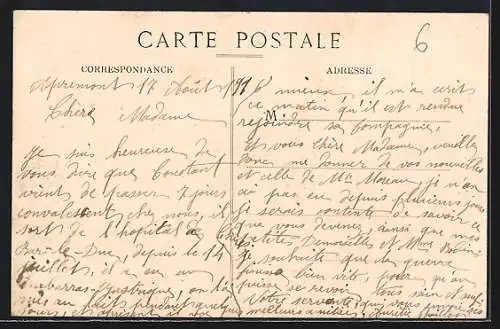 CARTE POSTALE
6
CORRESPONDANCE
ADRESSE
Apremont 17 Août 191
Chère Madame
Je suis heureuse de
vous dire que Constant
vient de passer 7 jours
convalescent chez nous, il
sort de l'hopital de
Bar-le-Duc, depuis le 14
juillet, il a eu un
embarras Gastrique, on l'a
mis au lait pendant
jours, et à présent
mieux, il m'a écrit
ce matin qu'il est rendue
M.
rejoindre sa Compagnie,
et vous Chère Madame, veuillez
donc me donner de vos nouvelles
et celle de Mme Moreau je n'en
ai pas eu depuis plusieurs jours
je serais contente de savoir ce
que vous devenez, ainsi que mes
petites Demoiselles et Mme
Je souhaite que la guerre
finisse bien vite, pour qu'on
puisse se revoir. tous sain et sauf
Votre servante, qui vous envoie ses
meilleures amitiés,